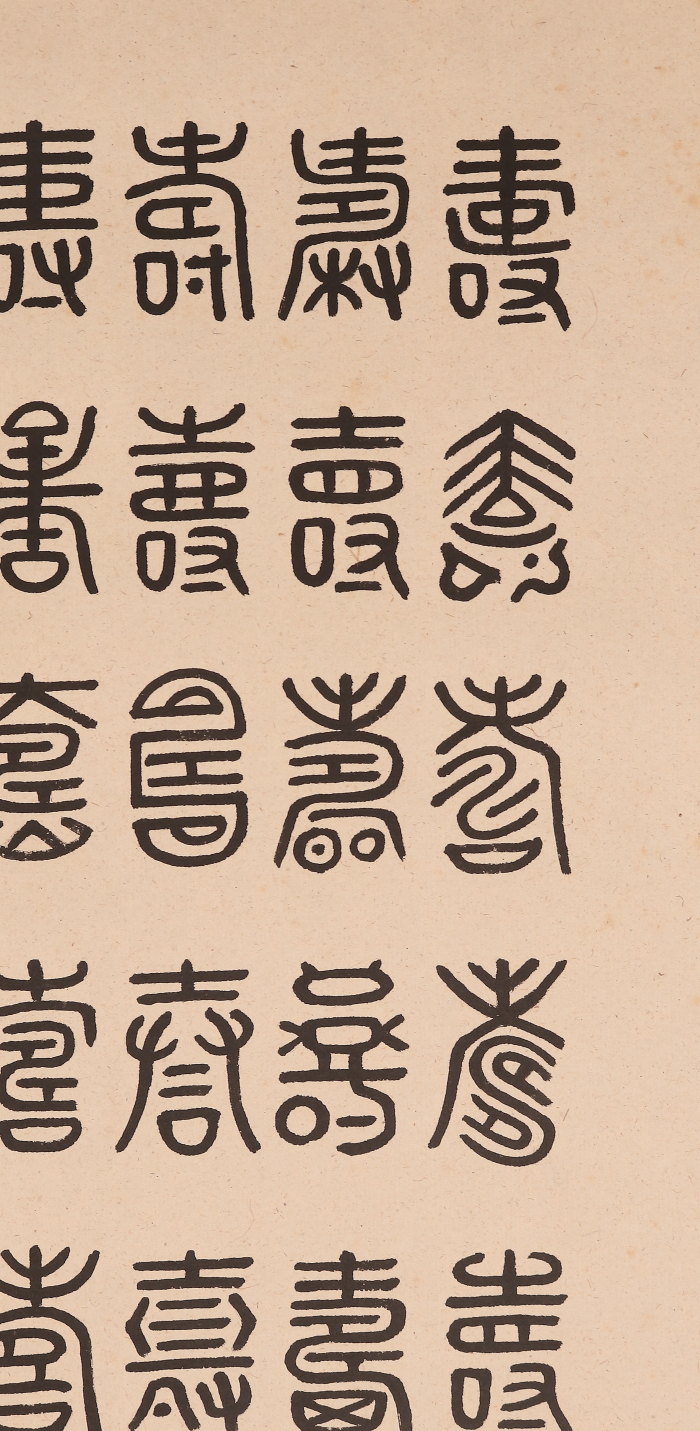 壽壽壽壽壽
壽壽壽壽壽
壽壽壽壽壽
壽壽壽壽壽